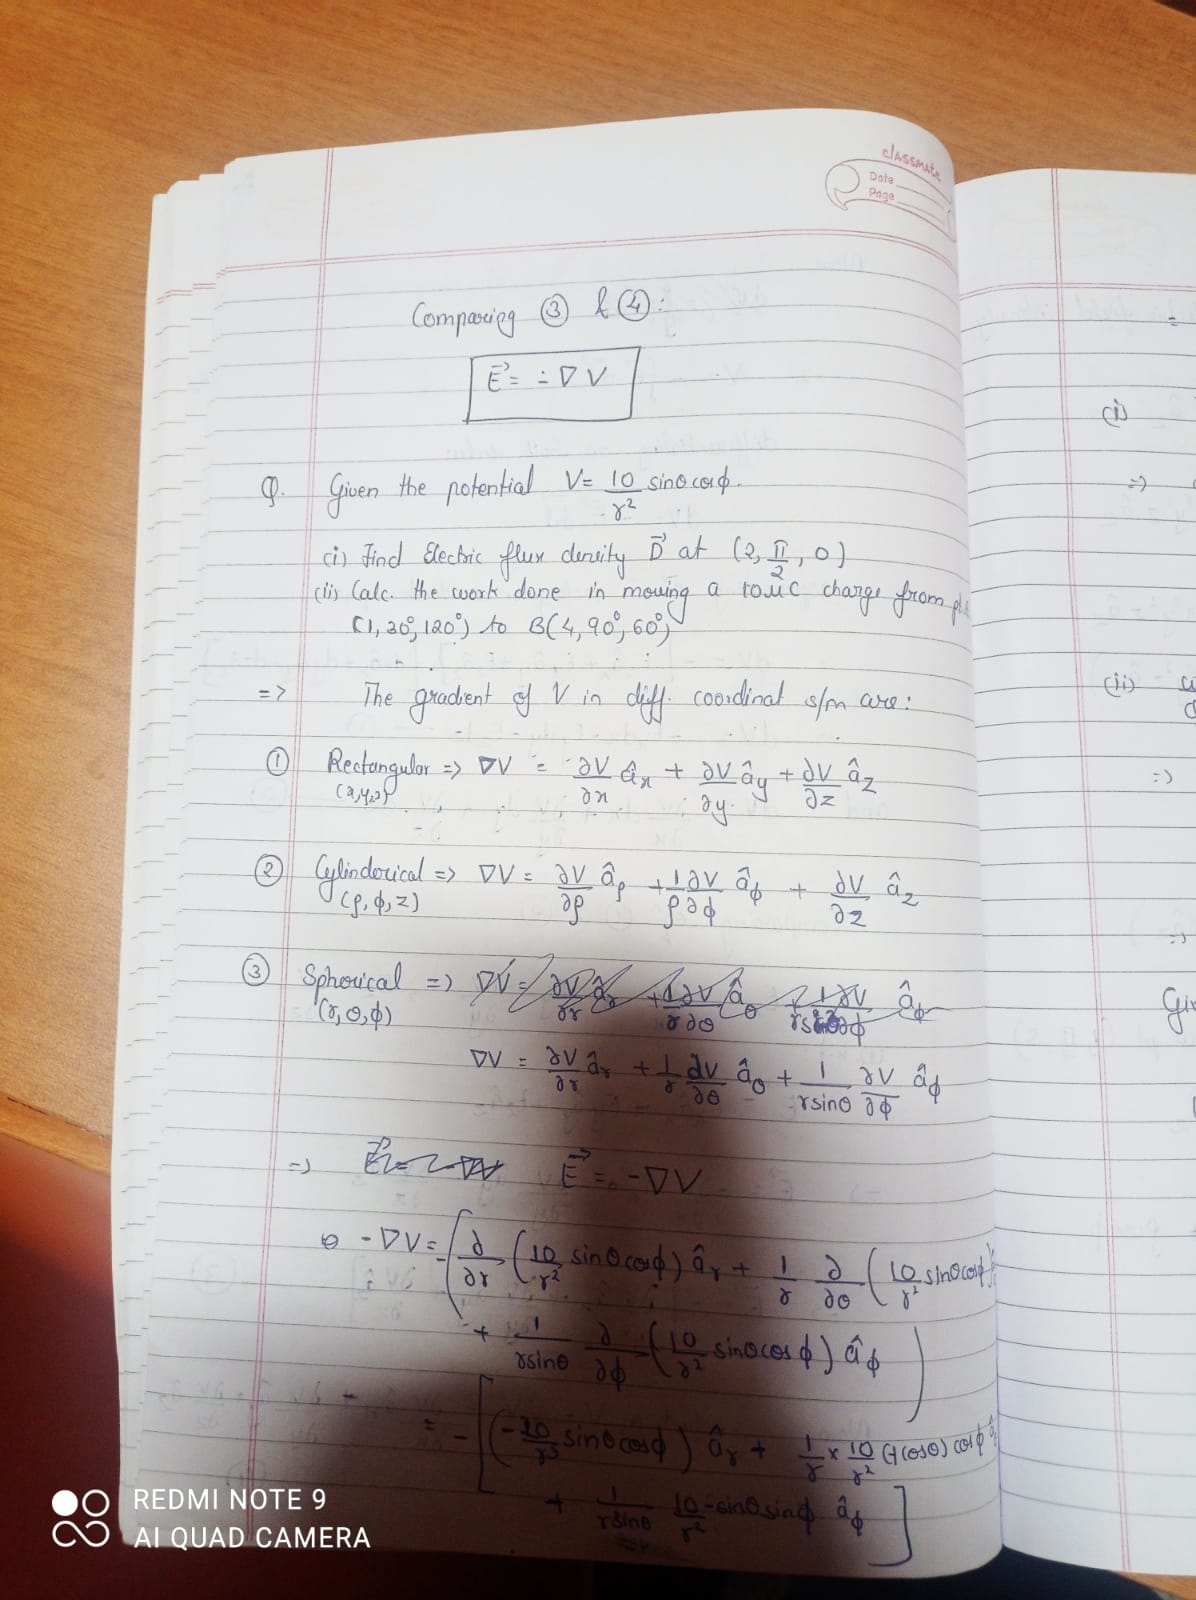 classmate
Date
Page
Comparing ③ & ④:
E⃗ = -∇V
Q. Given the potential V = 10/r² sinθ cosφ.
(i) Find Electric flux density D⃗ at (2, π/2, 0)
(ii) Calc. the work done in moving a 10μC charge from
(1, 30°, 120°) to B(4, 90°, 60°)
=> The gradient of V in diff. coordinat s/m are:
① Rectangular => ∇V = ∂V/∂x âx + ∂V/∂y ây + ∂V/∂z âz
(x,y,z)
② Cylinderical => ∇V = ∂V/∂ρ âρ + 1/ρ ∂V/∂φ âφ + ∂V/∂z âz
(ρ, φ, z)
③ Spherical => ∇V = ∂V/∂r âr + 1/r ∂V/∂θ âθ âφ
(r, θ, φ)
∇V = ∂V/∂r âr + 1/r ∂V/∂θ âθ + 1/rsinθ ∂V/∂φ âφ
=> E⃗ = -∇V
-∇V = -[∂/∂r (10/r² sinθ cosφ) âr + 1/r ∂/∂θ (10/r² sinθ cosφ)
+ 1/rsinθ ∂/∂φ (10/r² sinθ cosφ) âφ]
= -[(-20/r³ sinθ cosφ) âr + 1/r × 10/r² (+cosθ) cosφ
+ 1/rsinθ 10/r² -sinθ sinφ âφ]
(i)
=>
(ii)
=>
=>
REDMI NOTE 9
AI QUAD CAMERA